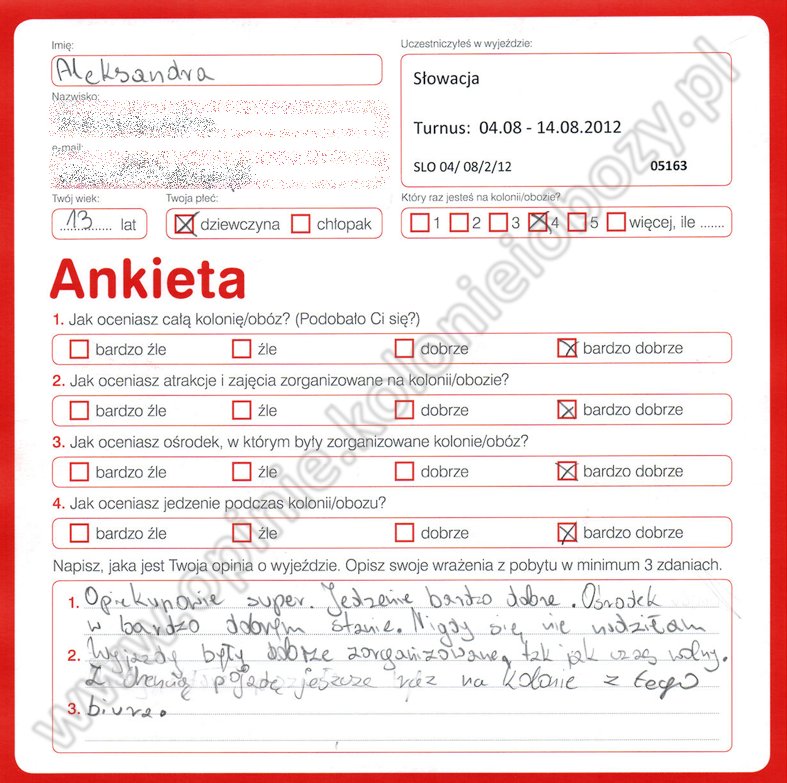 Imię:
Aleksandra
Uczestniczyłeś w wyjeździe:
Słowacja
Turnus: 04.08 - 14.08.2012
SLO 04/ 08/2/12 05163
Nazwisko:
e-mail:
Twój wiek:
13 lat
Twoja płeć:
dziewczyna chłopak
Który raz jesteś na kolonii/obozie?
1 2 3 4 5 więcej, ile .......
Ankieta
1. Jak oceniasz całą kolonię/obóz? (Podobało Ci się?)
bardzo źle źle dobrze bardzo dobrze
2. Jak oceniasz atrakcje i zajęcia zorganizowane na kolonii/obozie?
bardzo źle źle dobrze bardzo dobrze
3. Jak oceniasz ośrodek, w którym były zorganizowane kolonie/obóz?
bardzo źle źle dobrze bardzo dobrze
4. Jak oceniasz jedzenie podczas kolonii/obozu?
bardzo źle źle dobrze bardzo dobrze
Napisz, jaka jest Twoja opinia o wyjeździe. Opisz swoje wrażenia z pobytu w minimum 3 zdaniach.
1. Opiekunowie super. Jedzenie bardzo dobre. Ośrodek
w bardzo dobrym stanie. Nigdy się nie nudziłam
2. Wyjazdy były dobrze zorganizowane, tak jak czas wolny.
Z chęcią pojadę jeszcze raz na kolonie z tego
3. biura.
www.opinie.kolonieiobozy.pl